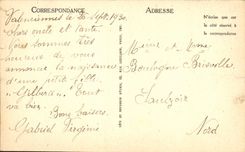 CORRESPONDANCE
ADRESSE
N'écrire que sur
le côté réservé à
la correspondance
Valenciennes le 26 Sept. 1930
Chers oncle et tante.
Nous sommes très
heureux de vous
annoncer la naissance
d'une petite fille
"Gilberte" Tout
va bien.
Bons baisers
Gabriel Virginie
Mr et Mme
Boulogne
Nord